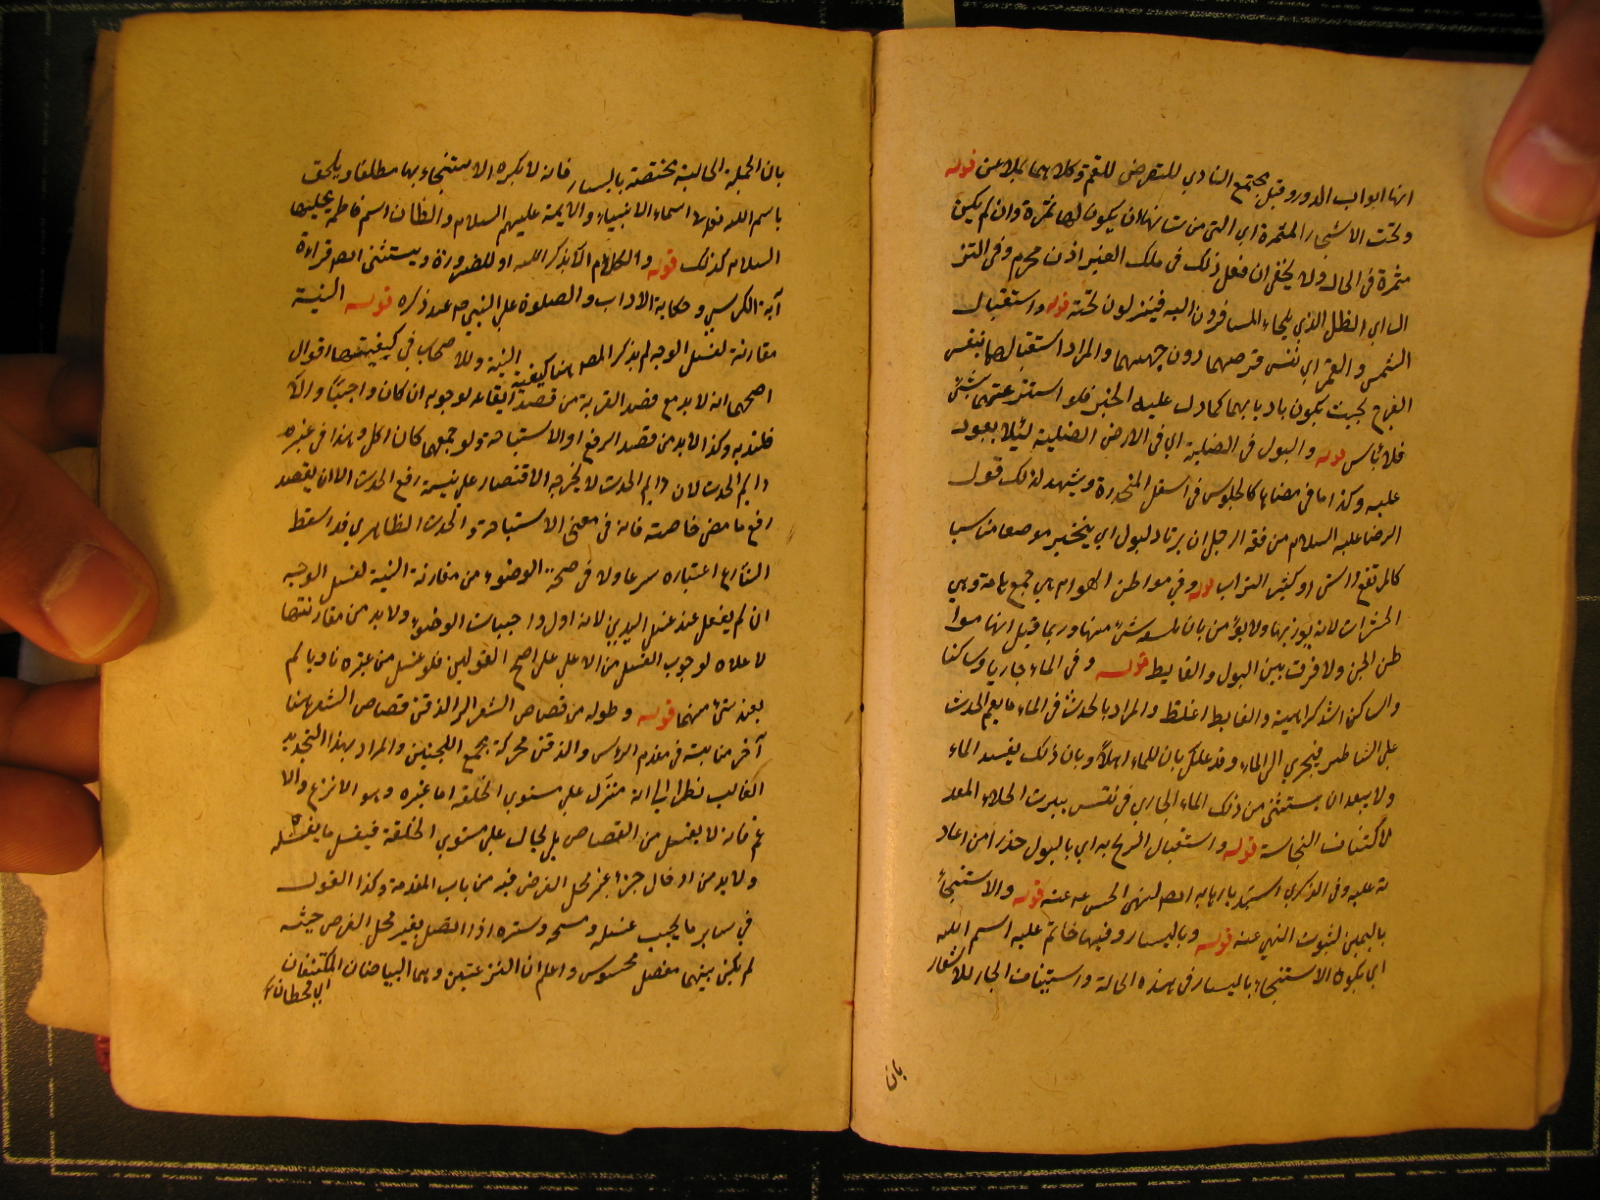 انها ابواب الدور وقيل مجتمع النادي للتعرض للقم وكلاهما ملاعن قوله
وتحت الاشجار المثمرة اي التي من شانها ان يكون لها ثمرة وان لم يكن
مثمرة في الحال ولا يخفى ان فعل ذلك في ملك الغير اذن محرم وفي النز
ال اي الظل الذي يلجاء المسافرون اليه فينزلون تحته قوله واستقبال
الشمس والقمر اي نفس قرصهما دون جهتهما والمراد استقبالهما بنفس
الفرج بحيث يكون باديا بهما كما دل عليه الخبر فلو استتر عنهما بشئ
فلا باس قوله والبول في الصلبة اي في الارض الصلبة لئلا يعود
عليه وكذا ما في معناها كالجلوس في اسفل المنحدرة ويشهد لذلك قول
الرضا عليه السلام من فقه الرجل ان يرتاد لبوله اي يتخير موضعا مناسبا
كالمرتفع او كثير التراب قوله وفي مواطن الهوام هي جمع هامة وهي
الحشرات لانه يؤذيها ولا يؤمن بان تلسعه شئ منها وربما قيل انها موا
طن الجن ولا فرق بين البول والغايط قوله وفي الماء جاريا وساكنا
والساكن اشد كراهية والغايط اغلظ والمراد بالحدث في الماء ما يعم الحدث
على الشاطئ فيجري الى الماء وقد علل بان للماء اهلا وبان ذلك يفسد الماء
ولا يبعد ان يستثنى من ذلك الماء الجاري في نفس بيت الخلاء المعد
لاكتناف النجاسة قوله واستقبال الريح به اي بالبول حذرا من اعاد
ته عليه وفي الذكرى استدبارها به ايضا لنهي الحسن ع عنه قوله والاستنجاء
باليمين لثبوت النهي عنه قوله وباليسار وفيها خاتم عليه اسم الله
اي يكره الاستنجاء باليسار في هذه الحالة واستيناف الجار للاشعار
بان
بان الجملة الحالية مختصة باليسار فانه لا يكره الاستنجاء بها مطلقا ويلحق
باسم الله تعالى اسماء الانبياء والائمة عليهم السلام والظان اسم فاطمة عليها
السلام كذلك قوله والكلام الا بذكر الله او للضرورة ويستثنى ايضا قراءة
آية الكرسي وحكاية الاداب والصلوة على النبي ص عند ذكره قوله النية
مقارنة لغسل الوجه لم يذكر المص هنا كيفية النية وللاصحاب في كيفيتها اقوال
اصحها انه لا بد مع قصد القربة من قصد ايقاعه لوجوبه ان كان واجبا والا
فلندبه وكذا لابد من قصد الرفع او الاستباحة ولو جمعهما كان اكل وهذا في غيره
دايم الحدث لان دايم الحدث لا يخرجه الاقتصار على نية رفع الحدث الا ان يقصد
رفع ما مضى خاصة فانه في معنى الاستباحة والحدث الظاهري قد اسقط
الشارع اعتباره سرعا ولا في صحة الوضوء من مقارنة النية لغسل الوجه
ان لم يفعل عند غسل اليدين لانه اول واجبات الوضوء ولا بد من مقارنتها
لاعلاه لوجوب الغسل من الاعلى على اصح القولين فلو غسل من غيره ناويا لم
يعتد بشئ منهما قوله وطوله من قصاص الشعر الى الذقن قصاص الشعر هنا
آخر منابته في مقدم الراس والذقن محركة مجمع اللحيين والمراد بهذا التحديد
الغالب نظرا الى انه منزل على مستوي الخلقة اما غيره وهو الانزع والا
غم فانه لا يغسل من القصاص بل يحال على مستوي الخلقة فيغسل ما يغسله
ولا بد من ادخال جزء من غير محل الفرض فيه من باب المقدمة وكذا القول
في ساير ما يجب غسله ومسحه وستره اذا اتصل بغير محل الفرض حيث
لم يكن بينهما مفصل محسوس واعلم ان النزعتين وهما البياضان المكتنفان
اي محيطان